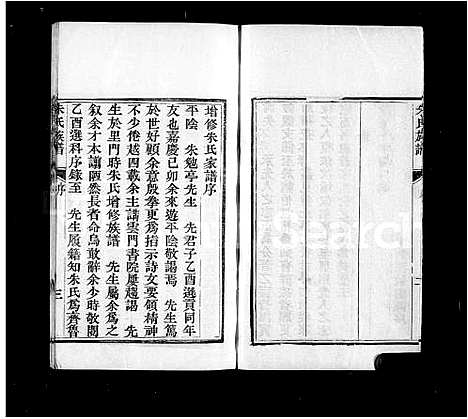 增修朱氏家譜序
平陰　朱勉亭先生　先君子乙酉選貢同年
友也嘉慶己卯余來遊平陰敬謁焉　先生篤
於世好顧余意殷拳更爲指示詩文要領精神
不少倦越四載余主講雲門書院屢趨謁　先
生於里門時朱氏增修族譜　先生屬余爲之
叙余才本謭陋然長者命烏敢辭余少時敬閱
乙酉選科序錄至　先生履籍知朱氏爲齊魯
朱氏族譜
序
三
朱氏族譜